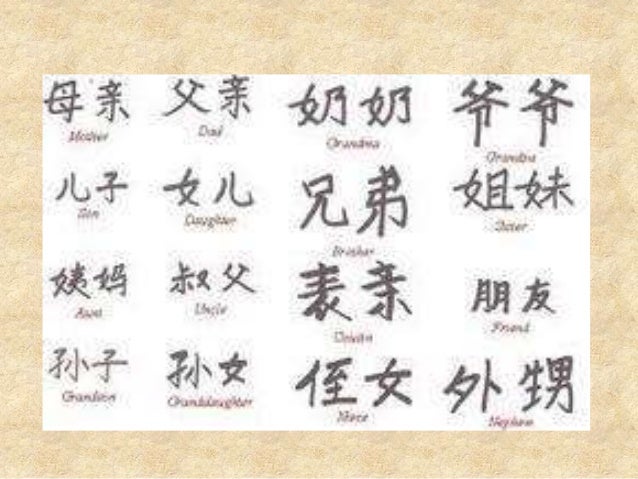 母亲 父亲 奶奶 爷爷
Mother Dad Grandma Grandpa
儿子 女儿 兄弟 姐妹
Son Daughter Brother Sister
姨妈 叔父 表亲 朋友
Aunt Uncle Cousin Friend
孙子 孙女 侄女 外甥
Grandson Granddaughter Niece Nephew